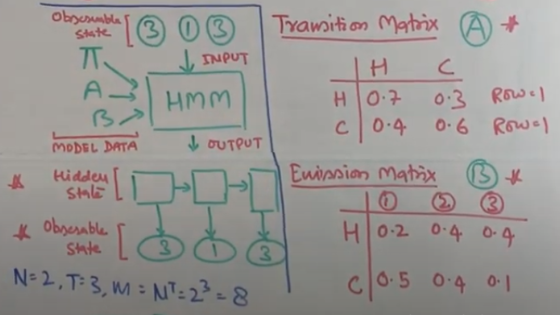 Observable
State [ 3 1 3
π
A
B
INPUT
HMM
MODEL DATA
OUTPUT
Hidden
State [
Observable
State [ 3 1 3
N=2, T=3, m = N^T = 2^3 = 8
Transition Matrix A *
H C
H 0.7 0.3 Row=1
C 0.4 0.6 Row=1
Emission Matrix B *
1 2 3
H 0.2 0.4 0.4
C 0.5 0.4 0.1